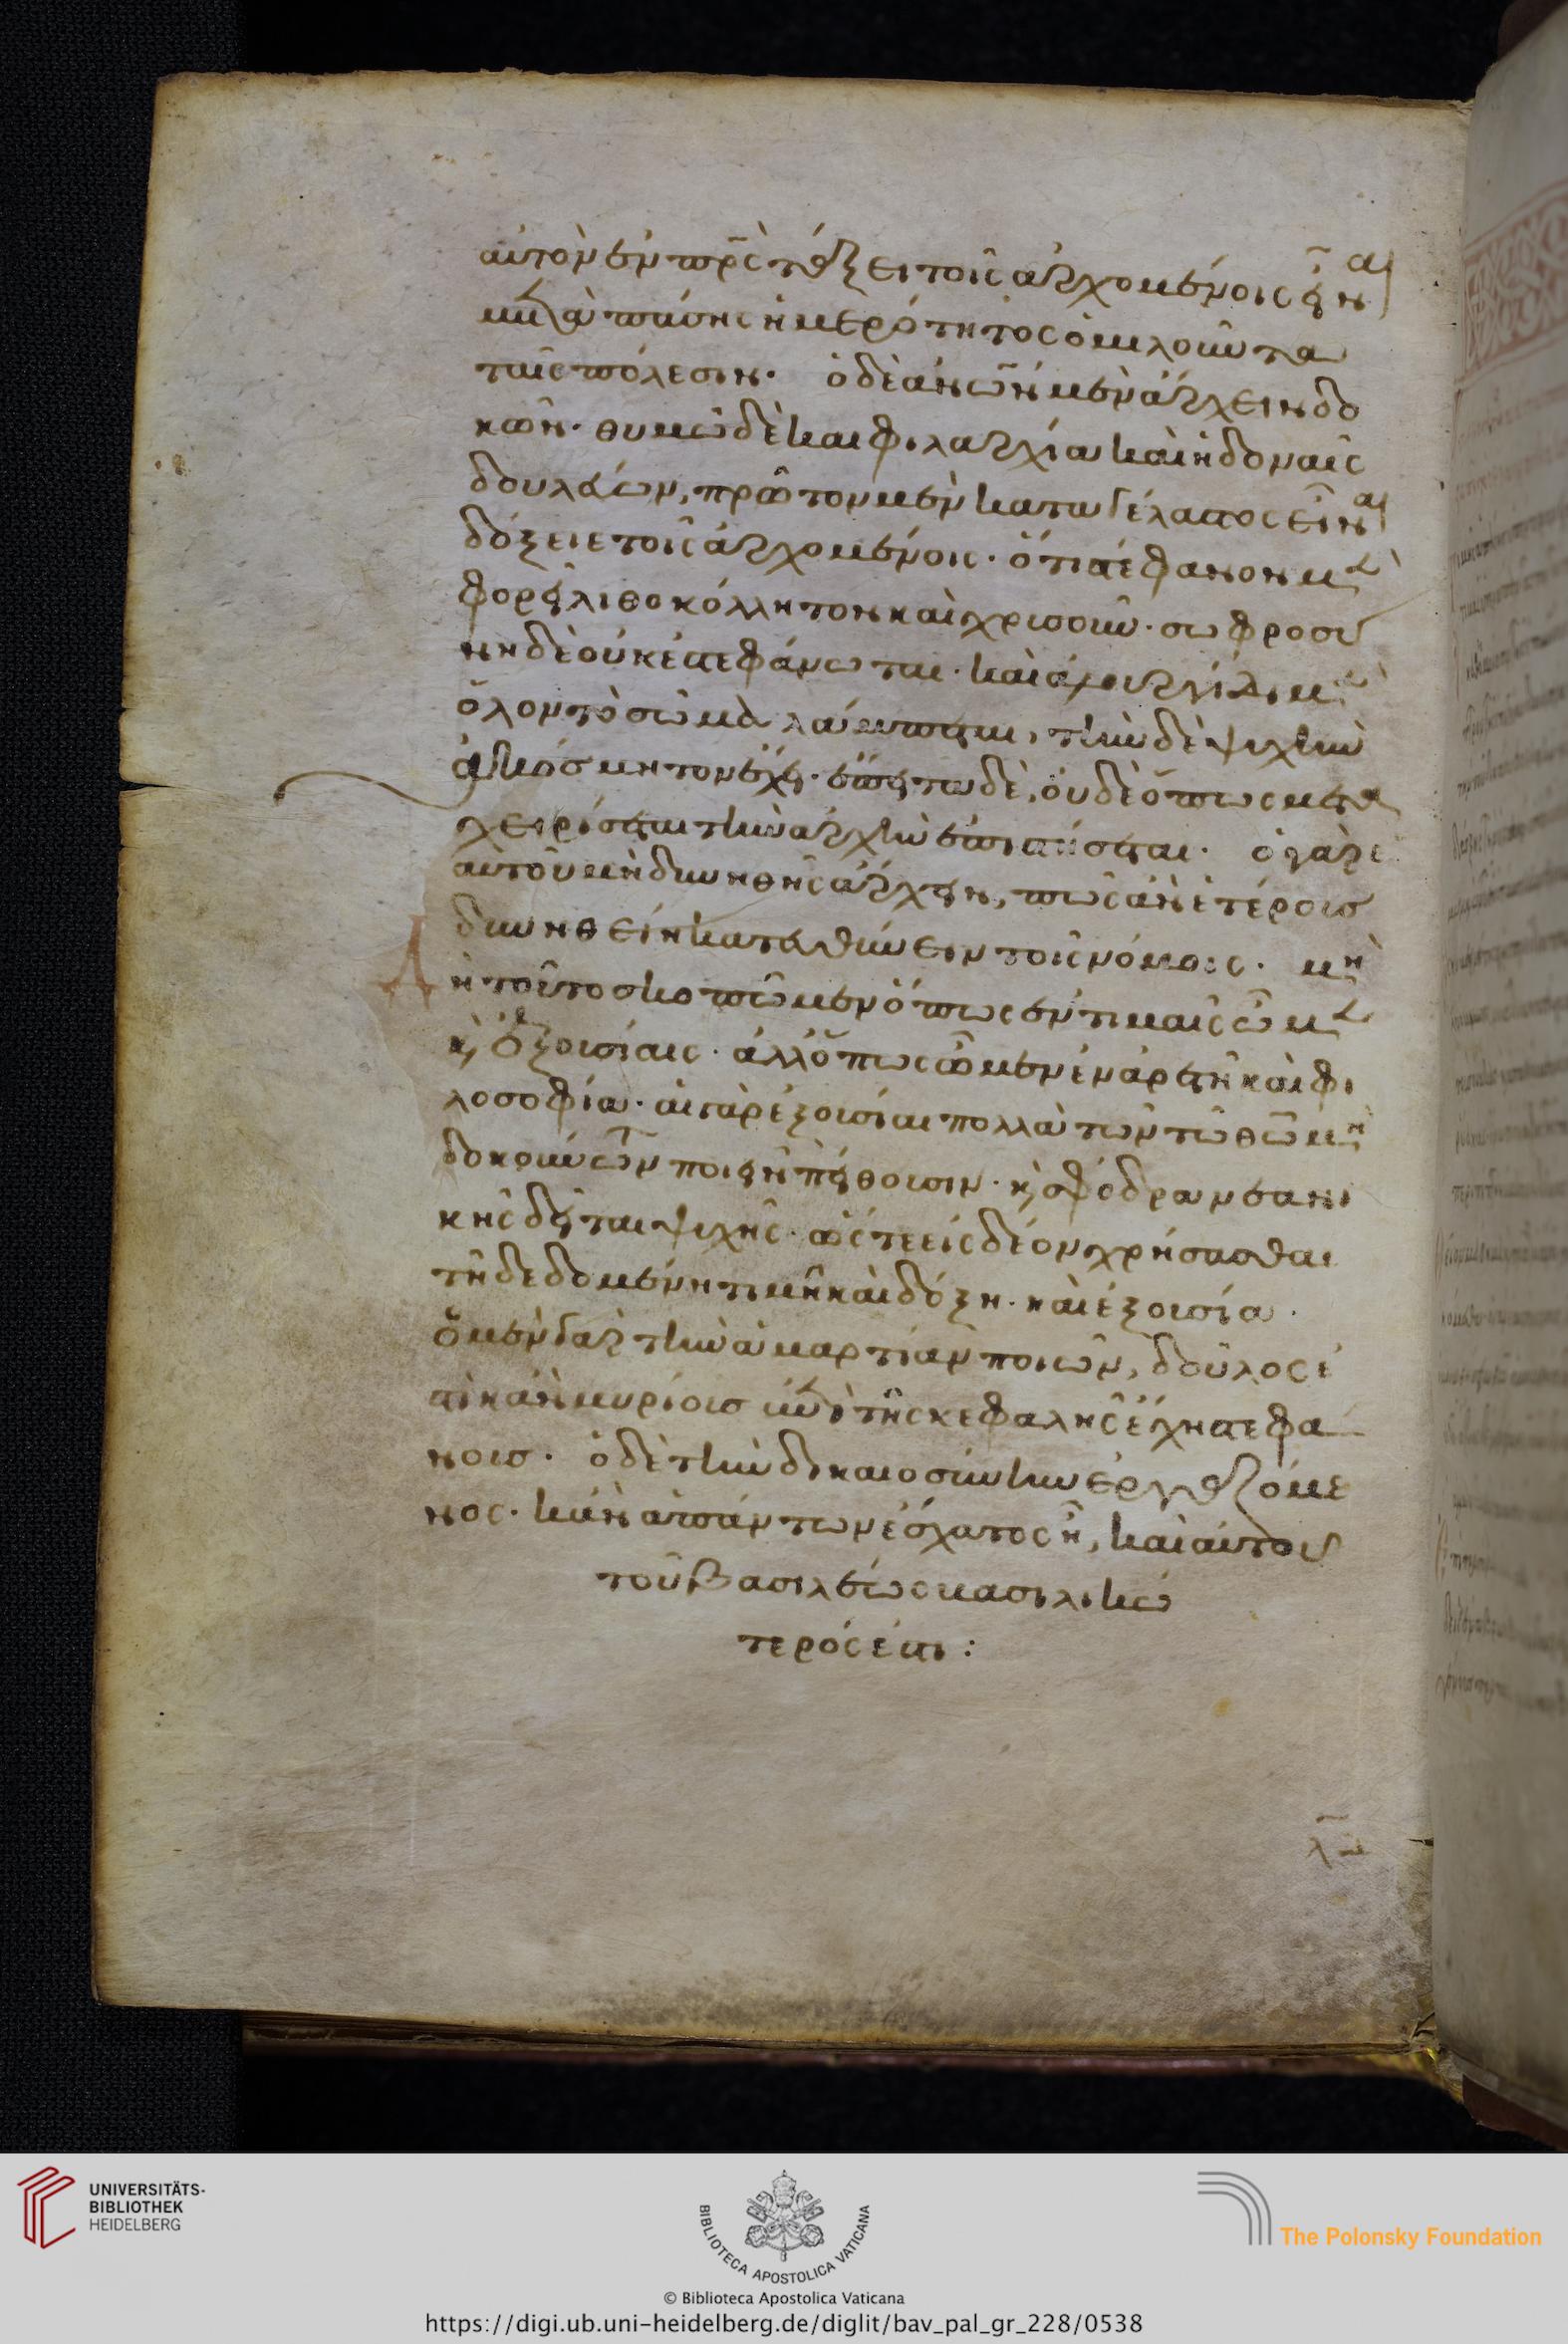 αὐτὸν ἐν πρὸς τάξει τοῖς ἀρχομένοις εἶναι
μετὰ πάσης ἡμερότητος ὁμιλοῦντα
ταῖς πόλεσιν. ὁ δὲ ἀνῶν μὲν ἄρχειν δο
κῶν. θυμῶ δὲ καὶ φιλαρχία καὶ ἡδοναῖς
δουλεύων, πρῶτον μὲν καταγέλαστος εἶναι
δόξειε τοῖς ἀρχομένοις. ὅτι στέφανον μὲν
φορεῖ λιθοκόλλητον καὶ χρυσοῦν. σωφροσύ
νη δὲ οὐκ ἐστεφάνωται. καὶ ἁλουργίδι μὲν
ὅλον τὸ σῶμα λάμπεται, τὴν δὲ ψυχὴν
ἀκόσμητον ἔχει. ἔπειτα δὲ, οὐδὲ ὅπως μετα
χειρίσεται τὴν ἀρχὴν ἐπιστήσεται. ὁ γὰρ ἑ
αυτοῦ μὴ δυνηθεὶς ἄρχειν, πῶς ἂν ἑτέρους
δυνηθείη κατευθύνειν τοῖς νόμοις. μὴ
δὴ τοῦτο σκοπῶμεν ὅπως ἐν τιμαῖς ὦμεν
καὶ ἐξουσίαις. ἀλλ' ὅπως ὦμεν ἐν ἀρετῆ καὶ φι
λοσοφία. αἱ γὰρ ἐξουσίαι πολλὰ τῶν τῶ θῶ μὴ
δοκούντων ποιεῖν πείθουσιν. καὶ σφόδρα νεανι
κῆς δεῖται ψυχῆς. ὥστε εἰς δέον χρήσασθαι
τῆ δεδομένη τιμῆ καὶ δόξη. καὶ ἐξουσία.
ὁ μὲν γὰρ τὴν ἁμαρτίαν ποιῶν, δοῦλός ἐ
στι κἂν μυρίους ἐπὶ τῆς κεφαλῆς ἔχη στεφά
νους. ὁ δὲ τὴν δικαιοσύνην ἐργαζόμε
νος. κἂν ἁπάντων ἔσχατος ἦ, καὶ αὐτοῦ
τοῦ βασιλέως βασιλικώ
τερός ἐστι:
UNIVERSITÄTS-
BIBLIOTHEK
HEIDELBERG
BIBLIOTECA APOSTOLICA VATICANA
The Polonsky Foundation
© Biblioteca Apostolica Vaticana
https://digi.ub.uni-heidelberg.de/diglit/bav_pal_gr_228/0538